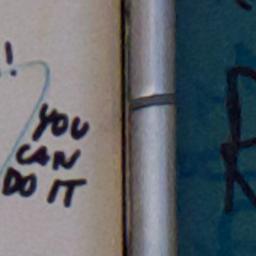 !
YOU
CAN
DO IT
R